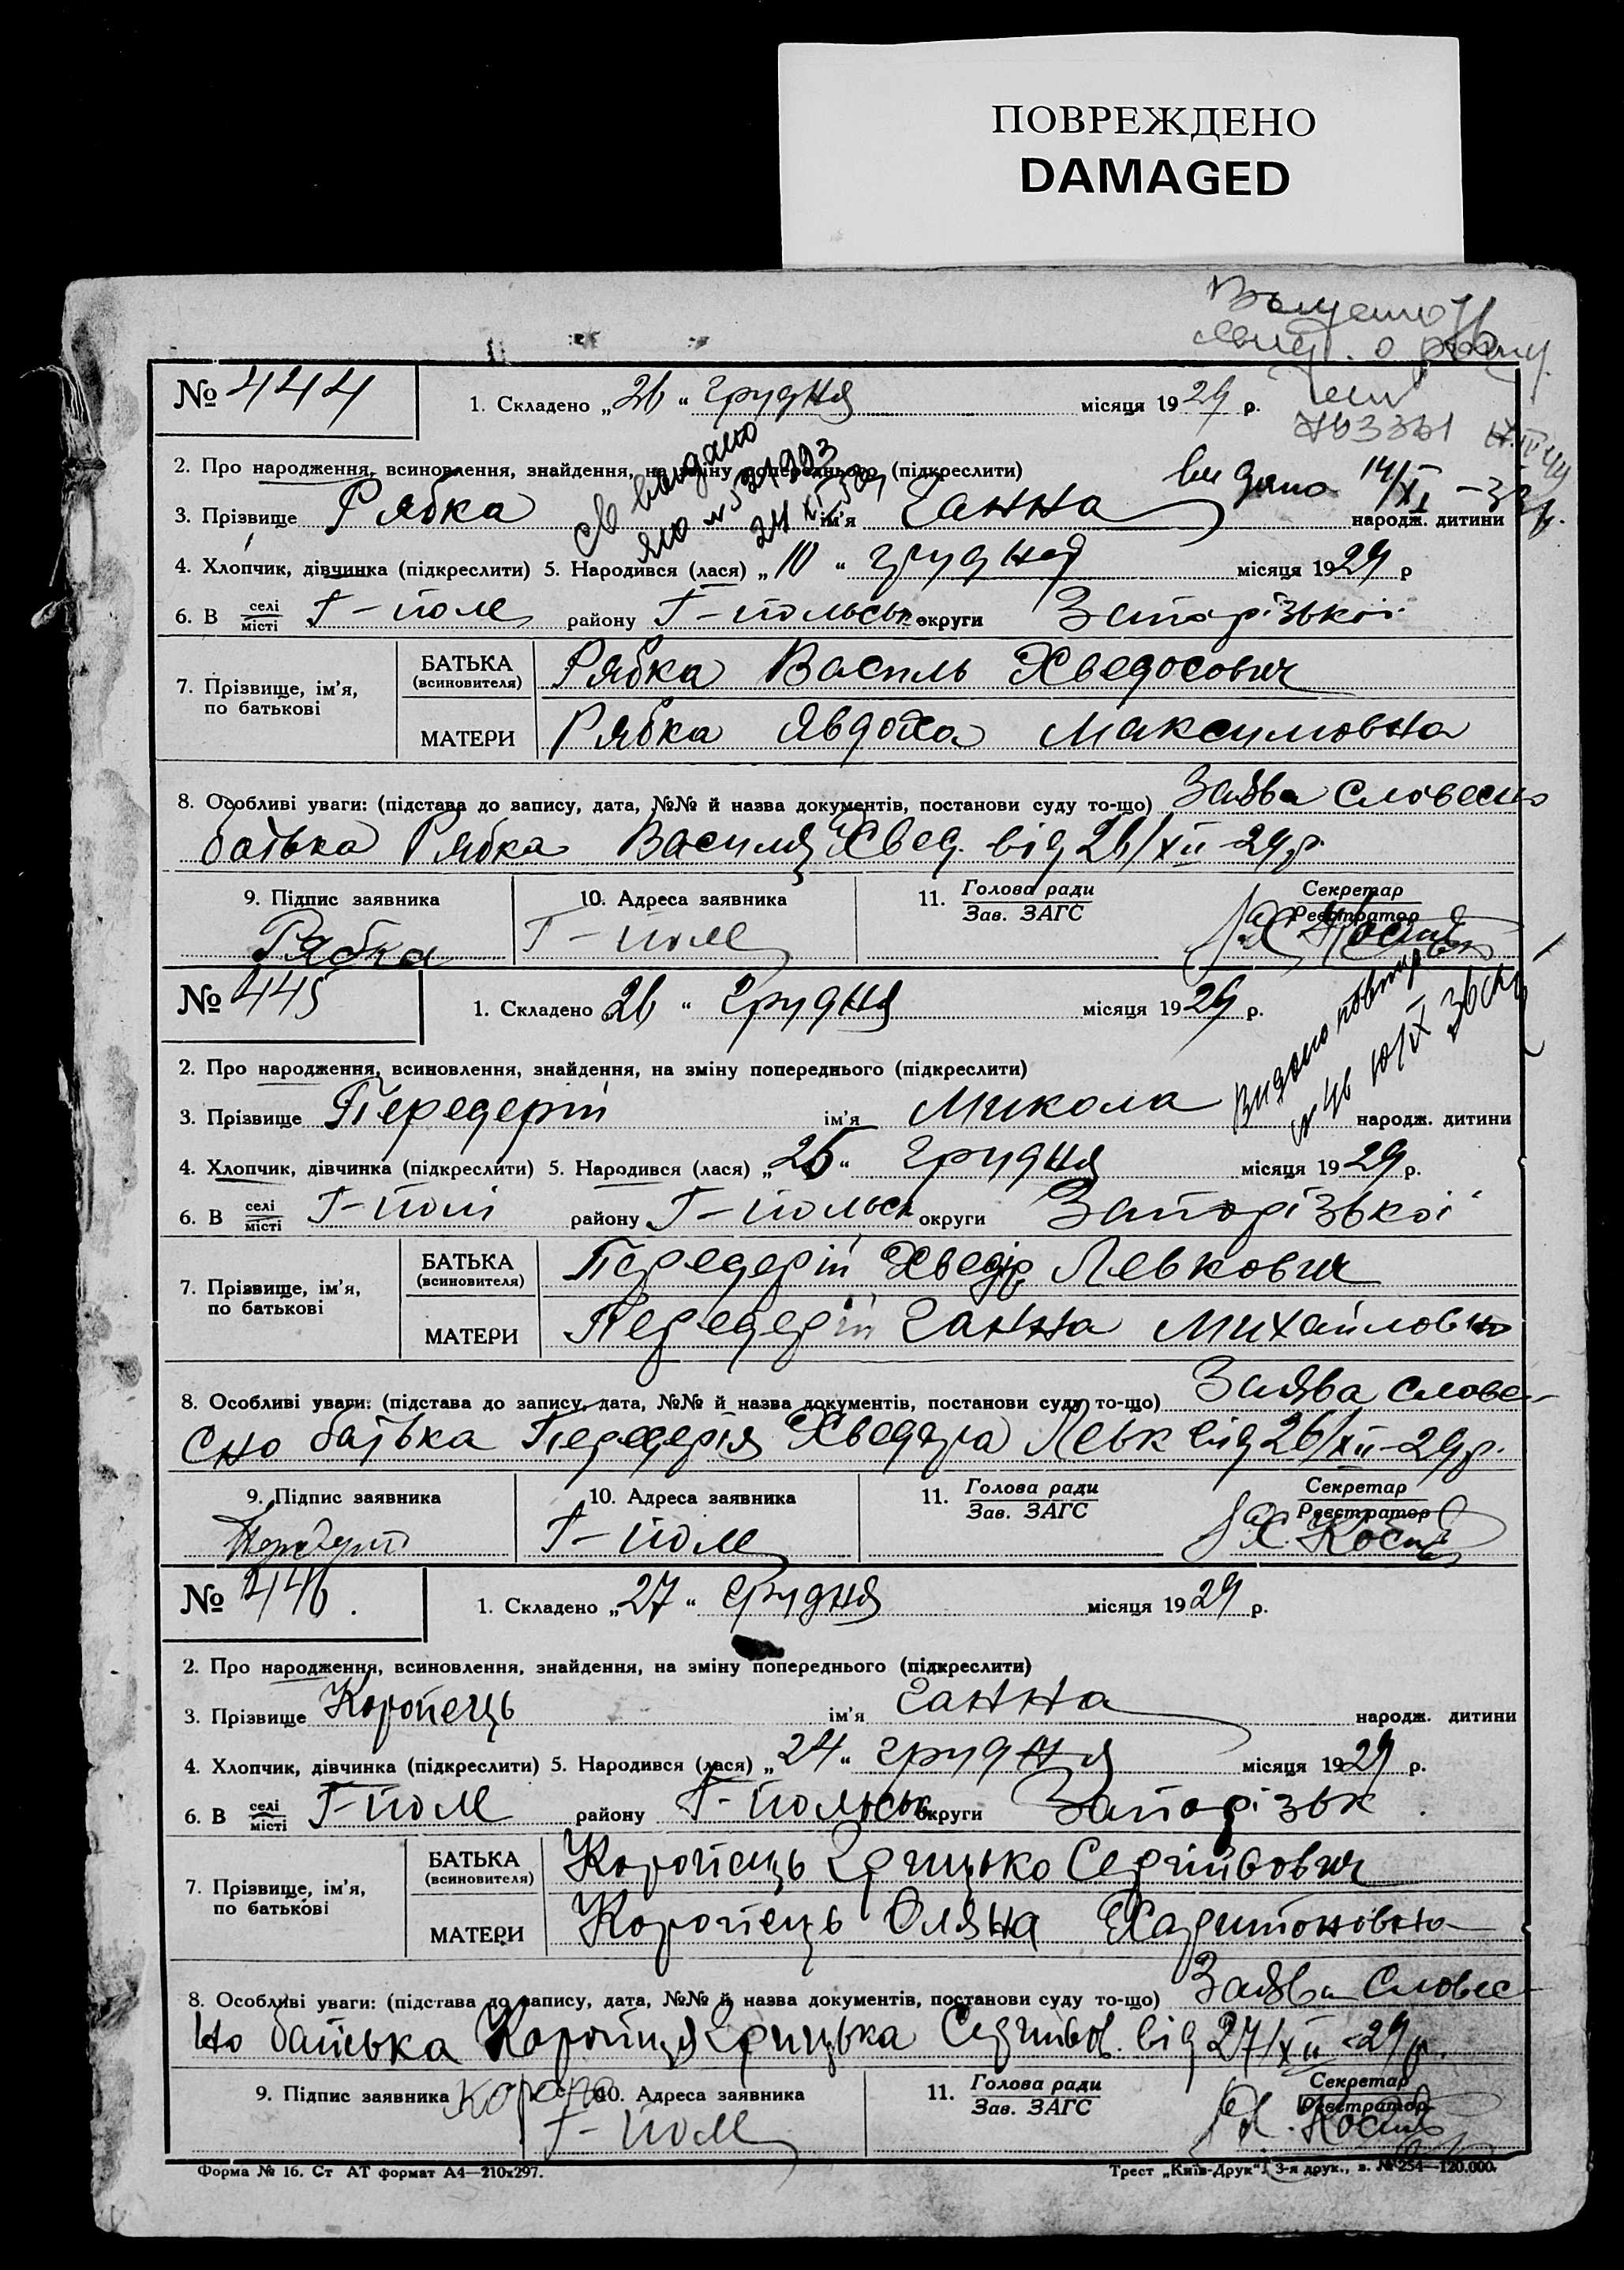 ПОВРЕЖДЕНО
DAMAGED
№ 444
1. Складено „26“ грудня місяця 1929 р.
2. Про народження, всиновлення, знайдення, на зміну попереднього (підкреслити)
видано 14/XI
3. Прізвище Рябка ім'я Ганна народж. дитини
4. Хлопчик, дівчинка (підкреслити) 5. Народився (лася) „10“ грудня місяця 1929 р
6. В селі місті Г-Поле району Г-Польськ округи Запорізької
7. Прізвище, ім'я, по батькові
БАТЬКА (всиновителя) Рябка Василь Хведосович
МАТЕРИ Рябка Явдоха Максимовна
8. Особливі уваги: (підстава до запису, дата, №№ й назва документів, постанови суду то-що) Заява словесно
батька Рябка Василя Хвед. від 26/XII-29р.
9. Підпис заявника 10. Адреса заявника 11. Голова ради Зав. ЗАГС Секретар Реєстратор
Рябка Г-Поле
№ 445
1. Складено 26 “ грудня місяця 1929 р.
2. Про народження, всиновлення, знайдення, на зміну попереднього (підкреслити)
3. Прізвище Передерій ім'я Микола народж. дитини
4. Хлопчик, дівчинка (підкреслити) 5. Народився (лася) „25“ грудня місяця 1929 р.
6. В селі місті Г-Полі району Г-Польськ округи Запорізької
7. Прізвище, ім'я, по батькові
БАТЬКА (всиновителя) Передерій Хведір Левкович
МАТЕРИ Передерій Ганна Михайловна
8. Особливі уваги: (підстава до запису, дата, №№ й назва документів, постанови суду то-що) Заява слове-
сно батька Передерія Хведора Левк від 26/XII-29р.
9. Підпис заявника 10. Адреса заявника 11. Голова ради Зав. ЗАГС Секретар Реєстратор
Г-Поле
№ 446.
1. Складено „27“ грудня місяця 1929 р.
2. Про народження, всиновлення, знайдення, на зміну попереднього (підкреслити)
3. Прізвище Коропець ім'я Ганна народж. дитини
4. Хлопчик, дівчинка (підкреслити) 5. Народився (лася) „24“ грудня місяця 1929 р.
6. В селі місті Г-Поле району Г-Польськ округи Запорізьк.
7. Прізвище, ім'я, по батькові
БАТЬКА (всиновителя) Коропець Грицько Сергійович
МАТЕРИ Коропець Оляна Харитоновна
8. Особливі уваги: (підстава до запису, дата, №№ й назва документів, постанови суду то-що) Заява словес-
но батька Коропця Грицька Сергійов. від 27/XII-29р.
9. Підпис заявника 10. Адреса заявника 11. Голова ради Зав. ЗАГС Секретар Реєстратор
Г-Поле
Форма № 16. Ст АТ формат А4—210х297. Трест „Київ-Друк“, 3-я друк., з. № 254—120.000.